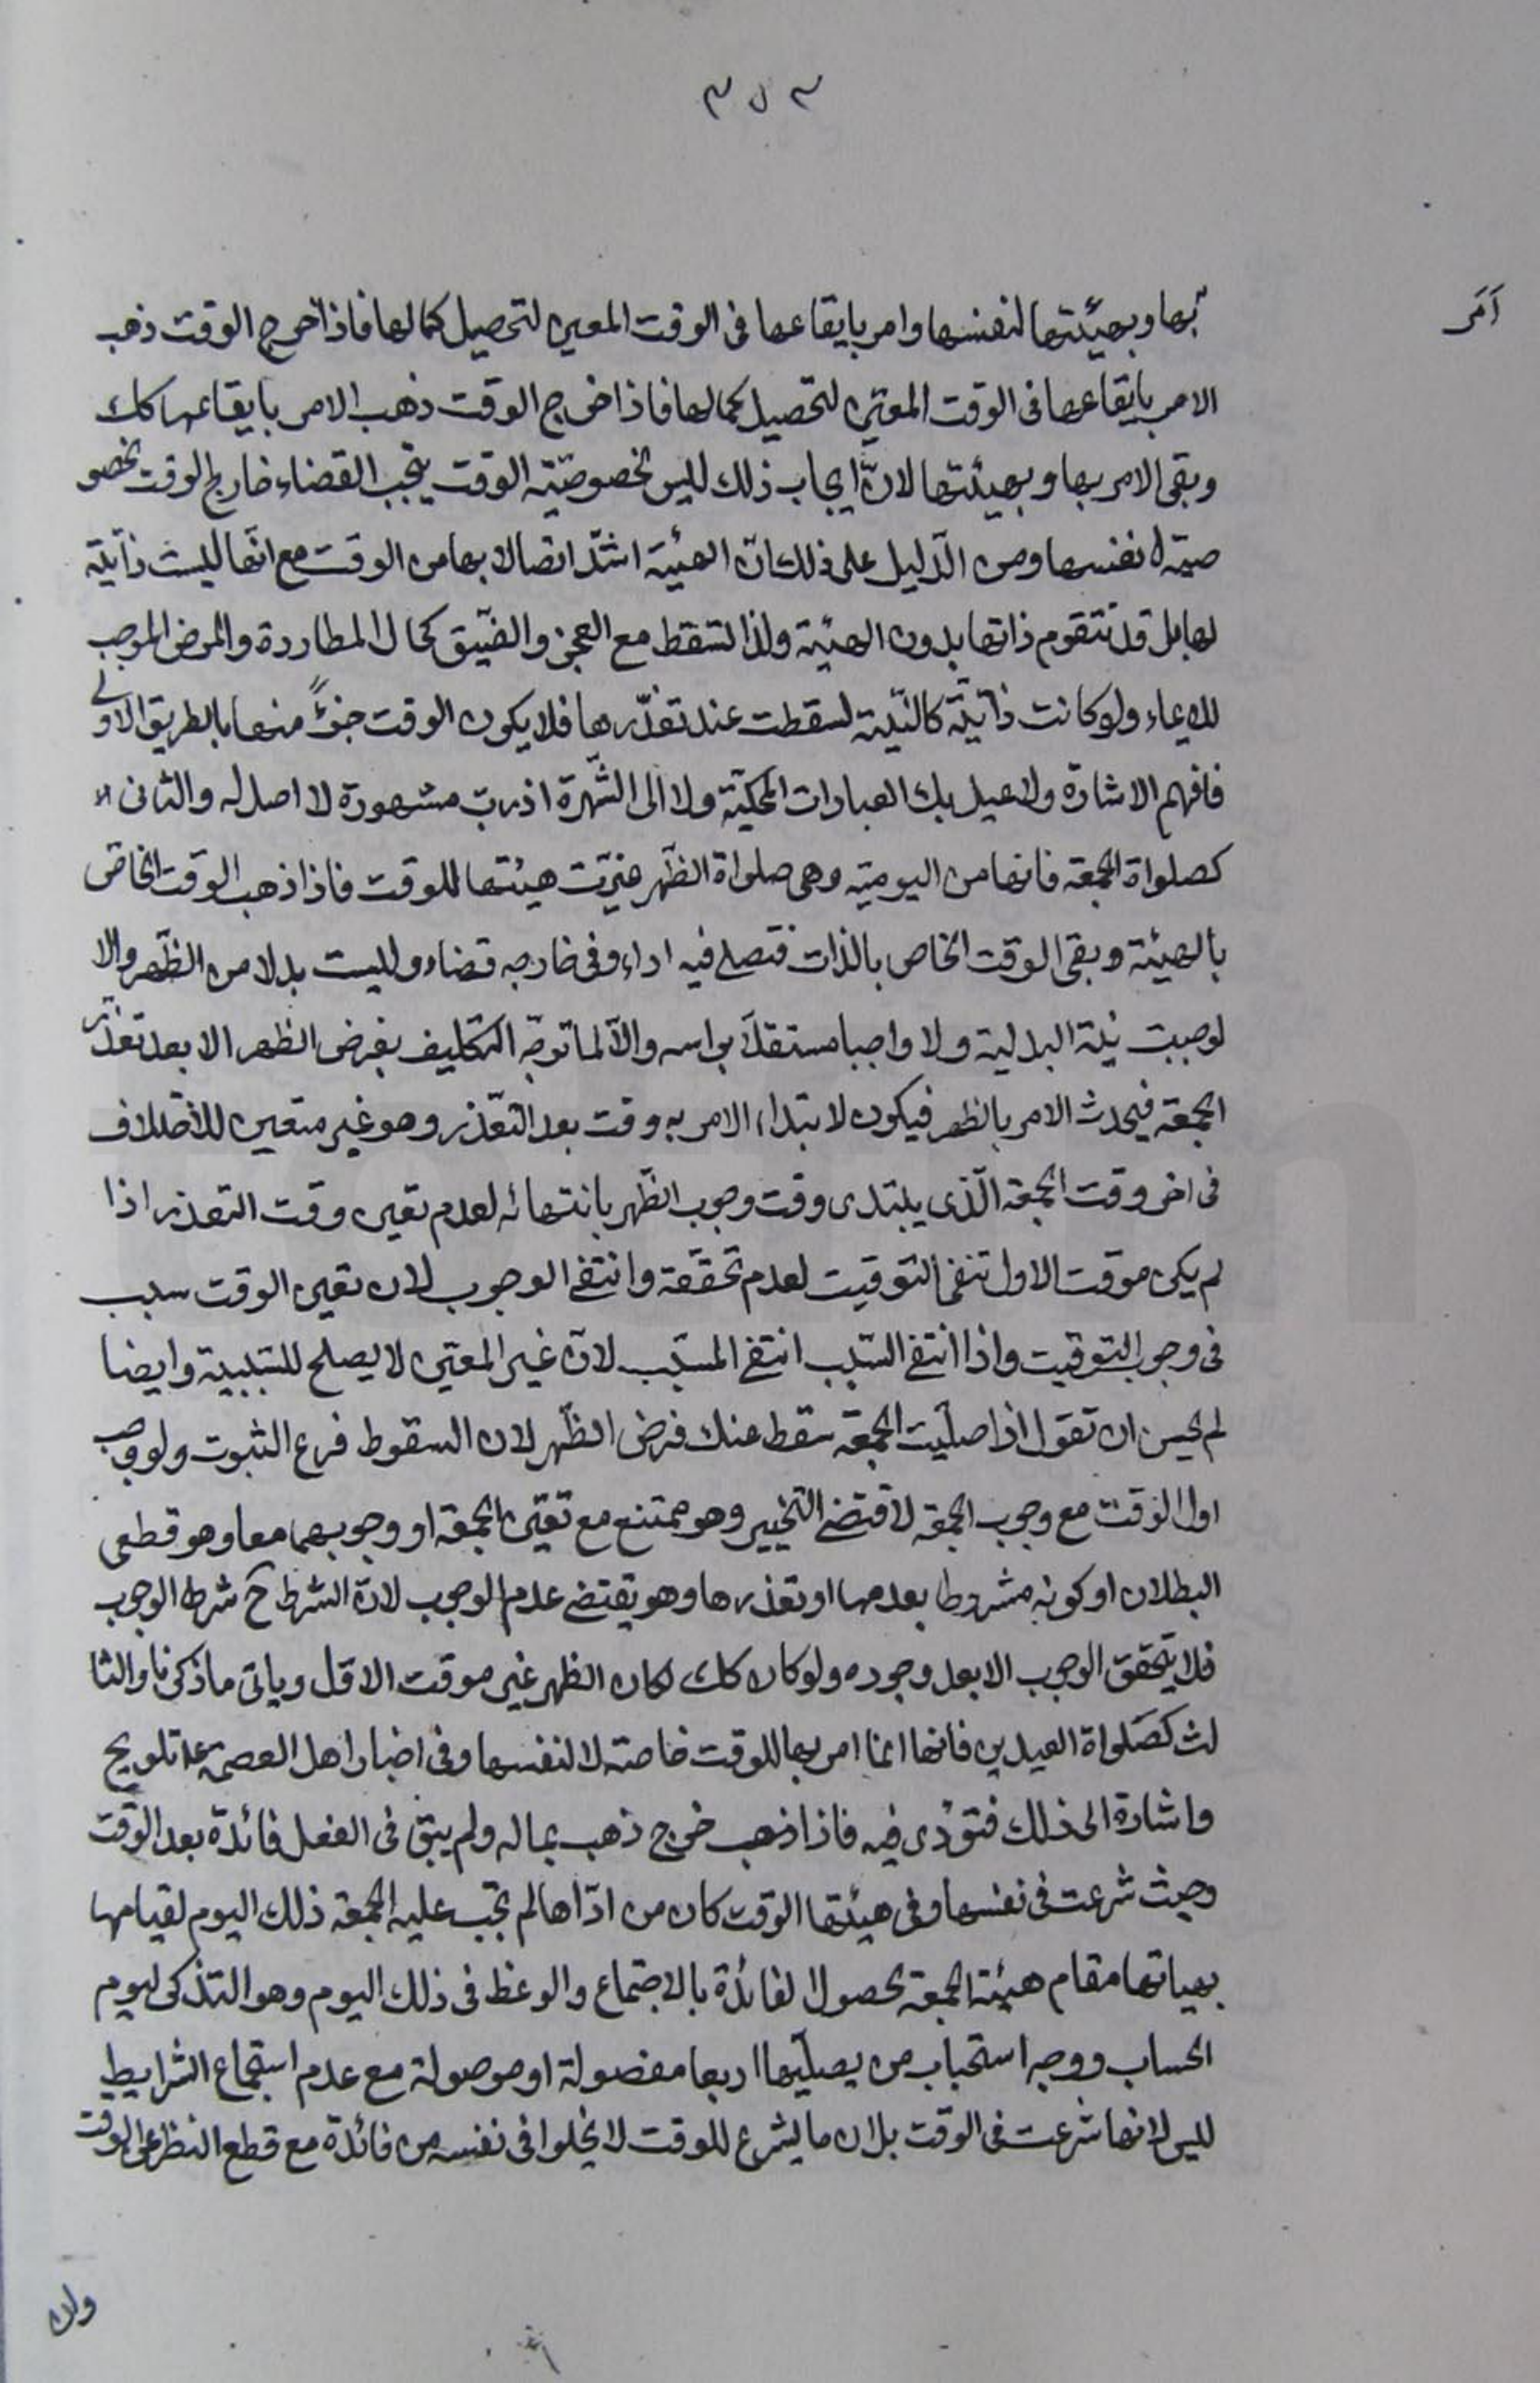 ٣٥٣
أمر
بها وبهيئتها لنفسها وامر بايقاعها فى الوقت المعين لتحصيل كمالها فاذا خرج الوقت ذهب
الامر بايقاعها فى الوقت المعيّن لتحصيل كمالها فاذا خرج الوقت ذهب الامر بايقاعها كك
وبقى الامر بها وبهيئتها لانّ ايجاب ذلك ليس لخصوصيّة الوقت يتجب القضاء خارج الوقت لخصو
صيّة نفسها ومن الدّليل على ذلك انّ الهيئة اشدّ اتصالا بها من الوقت مع انّها ليست ذاتيّة
لها بل قد تتقوم ذاتها بدون الهيئة ولذا تسقط مع العجز والضيّق كحال المطاردة والمرض الموجب
للايماء ولو كانت ذاتيّة كالنيّة لسقطت عند تعذّرها فلا يكون الوقت جزءً منها بالطريق الاولى
فافهم الاشارة ولا تميل بك العبارات المحكيّة ولا الى الشّهرة اذ ربّ مشهورة لا اصل له والثانى
كصلواة الجمعة فانها من اليوميّة وهى صلواة الظّهر غيّرت هيئتها للوقت فاذا ذهب الوقت الخاص
بالهيئة وبقى الوقت الخاص بالذات فتصلى فيه اداء وفى خارجه قضاء وليست بدلا من الظّهر والا
لوجبت نيّة البدلية ولا واجبا مستقلا برأسه والّا لما توجّه التكليف بفرض الظهر الا بعد تعذّر
الجمعة فيحدث الامر بالظهر فيكون لابتداء الامر به وقت بعد التعّذر وهو غير متعين للاختلاف
فى اخر وقت الجمعة الّذى يبتدى وقت وجوب الظّهر بانتهائه لعدم تعين وقت التعذر اذا
لم يكن موقت الاول تنفى التوقيت لعدم تحقّقه وانتفى الوجوب لان تعين الوقت سبب
فى وجوب التوقيت واذا انتفى السّبب انتفى المسبّب لانّ غير المعيّن لا يصلح للسّببية وايضا
لم يحسن ان تقول اذا صلّيت الجمعة سقط عنك فرض الظّهر لان السقوط فرع الثبوت ولو وجب
اول الوقت مع وجوب الجمعة لاقتضى التخيير وهو ممتنع مع تعيّن الجمعة او وجوبهما معا وهو قطعى
البطلان او كونه مشروطا بعدمها او تعذرها وهو يقتضى عدم الوجوب لانّ الشرط ح شرط الوجوب
فلا يتحقق الوجوب الا بعد وجوده ولو كان كك لكان الظهر غير موقت الاوّل وياتى ما ذكرنا والثا
لث كصَلواة العيدين فانها انما امر بها للوقت خاصة لا لنفسها وفى اخبار اهل العصمة ع تلويح
واشارة الى ذلك فتؤدى فيه فاذا ذهب خرج ذهب بماله ولم يبق فى الفعل فائدة بعد الوقت
وحيث شرعت فى نفسها وفى هيئتها الوقت كان من ادّاها لم تجب عليه الجمعة ذلك اليوم لقيامها
بهياتها مقام هيئة الجمعة لحصول الفائدة بالاجتماع والوعظ فى ذلك اليوم وهو التذكر ليوم
الحساب ووجه استحباب من يصلّيها اربعا مفصولة او موصولة مع عدم استجماع الشرايط
ليس لانها شرعت فى الوقت بل لان ما يشرع للوقت لا يخلوا فى نفسه من فائدة مع قطع النظر عن الوقت
ولان